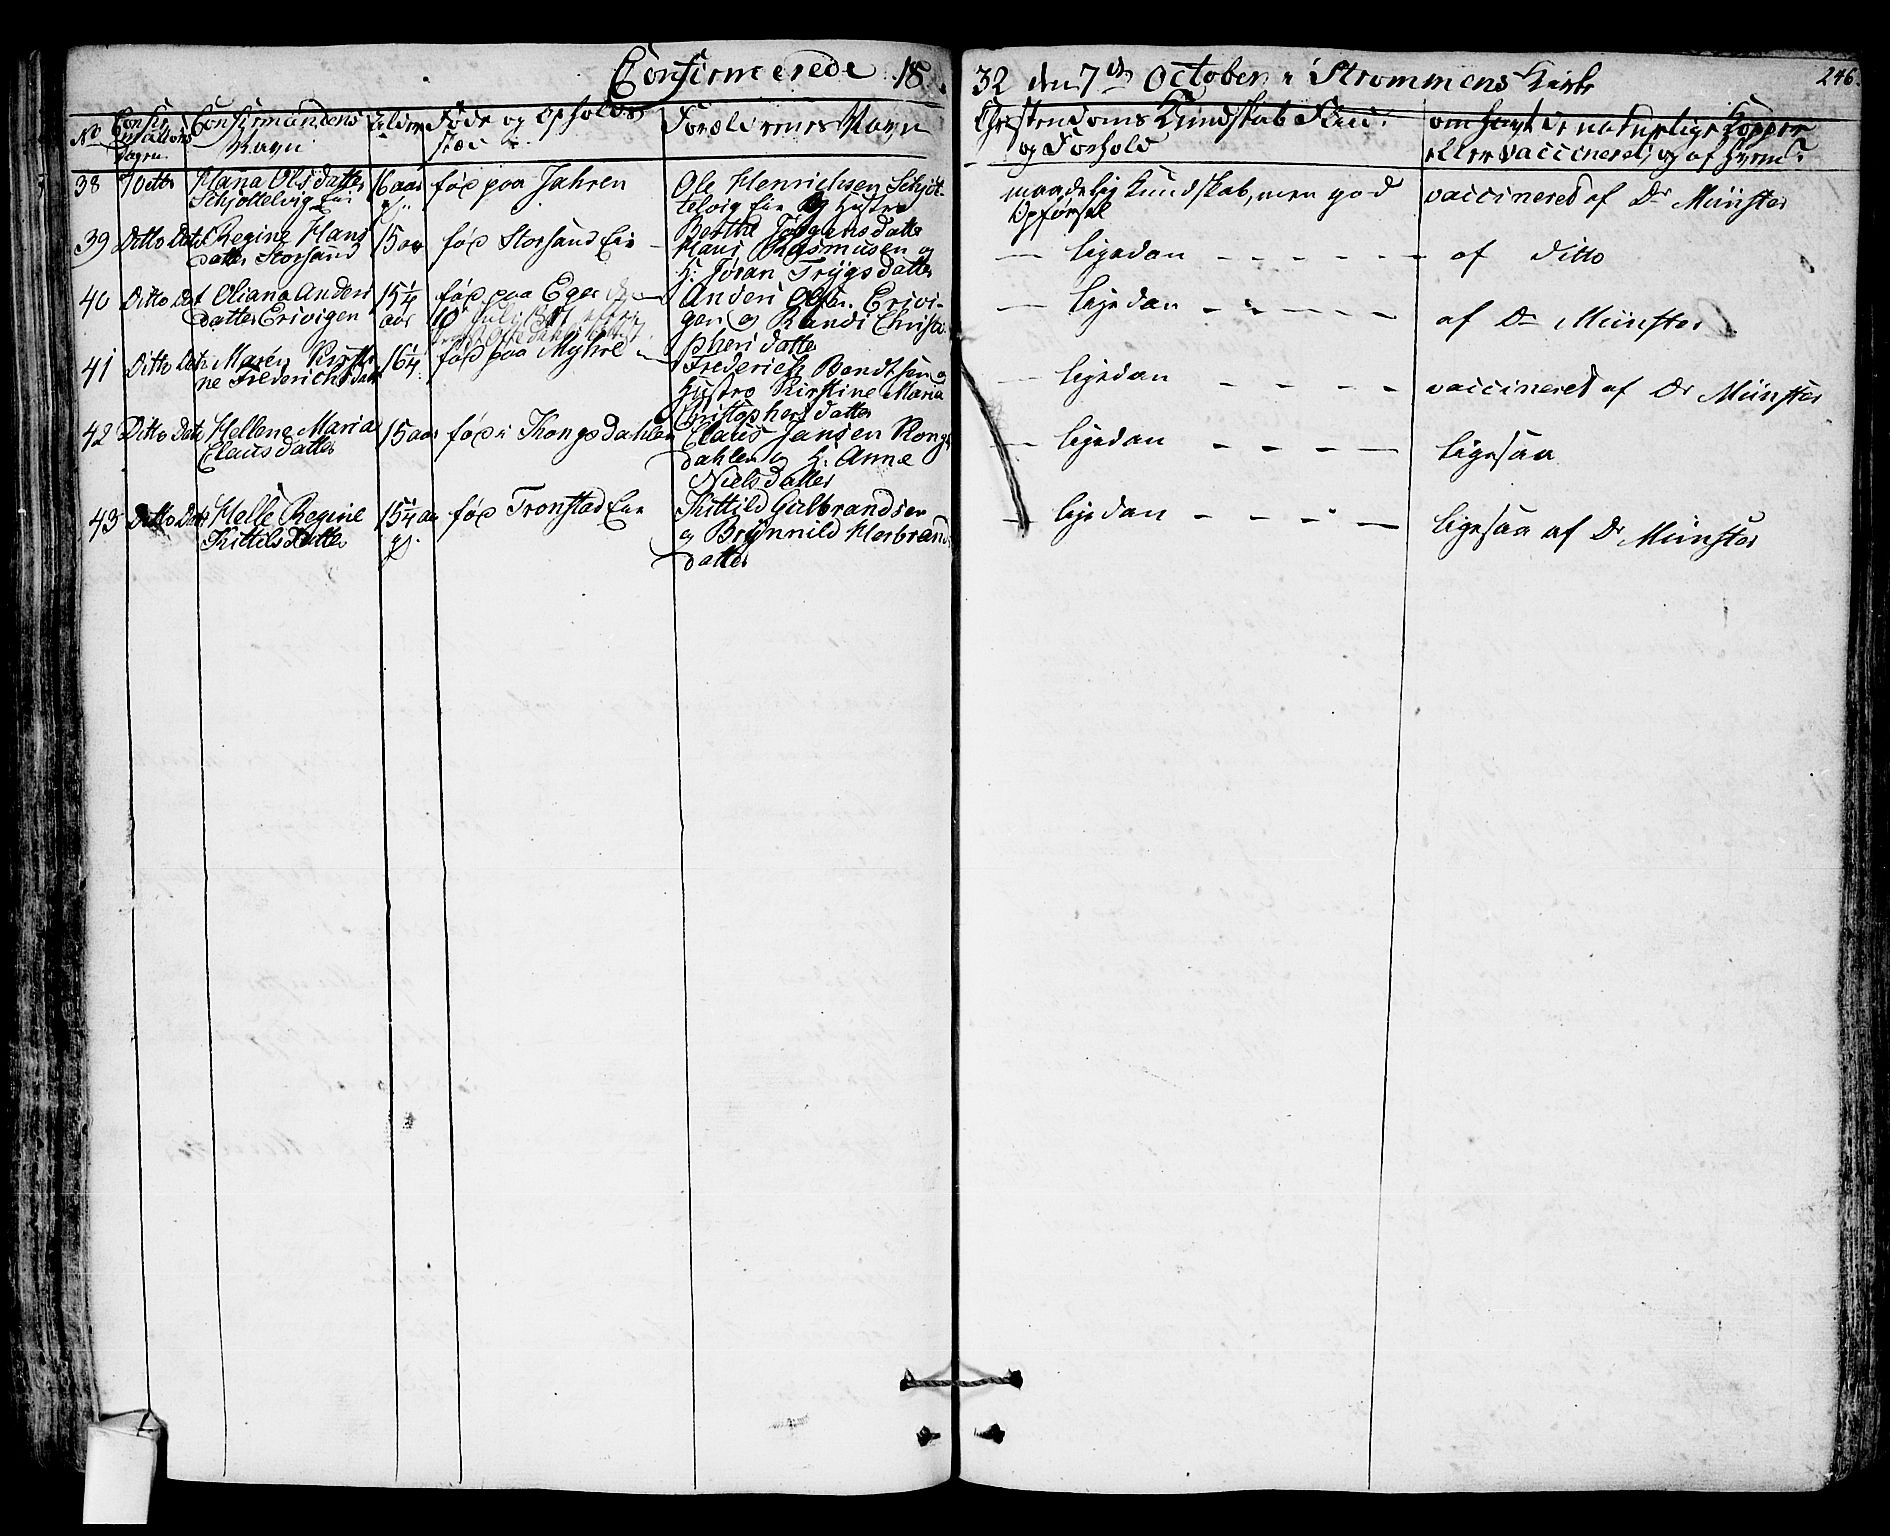 Confirmerede 18
32 den 7de October i Strømmens Kirke
246
No
Confirmandens
Navn
Alder
Føde og Opholds
Sted
Forældrenes Navn
Christendoms Kundskab
og Forhold
om havt de naturlige Kopper
eller vaccineret, og af hvem?
38 7 Octbr
Hana Olsdatter
Schjøttelvig Eie
16 aar
fød paa Jahren
Ole Henrichsen Schjøt-
telvig Eie og Hustro
Berthe Jørgensdatter
maadelig Kundskab, men god
Opførsel
vaccineret af Dr Münster
39 Ditto Dato
Regine Hans
datter Storsand
15 aar
fød Storsand Eie
Hans Rasmusen og
H: Joran Trygsdatter
ligedan
af Ditto
40 Ditto Dat
Oliana Anders
datter Ervigen
15 1/4
aar
fød paa Eger
Anders Olsen Ervi-
gen og Randi Christo
phersdatter
ligedan
af Dr Münster
41 Ditto Dato
Maren Kirsti-
ne Frederichsdatter
16 1/4
fød paa Myhre
Frederich Bendtsen og
Hustro Kirstine Maria
Christophersdatter
ligedan
vaccineret af Dr Münster
42 Ditto Dato
Hellene Maria
Clausdatter
15 aar
fød i Kongsdahlen
Claus Jansen Kongs
dahlen og H: Anne
Nielsdatter
ligedan
ligesaa
43 Ditto Dato
Helle Regine
Kittilsdatter
15 1/4 aar
fød Tronstad Eie
Kittild Gulbrandsen
og Brynnild Herbrands
datter
ligedan
ligesaa af Dr Münster